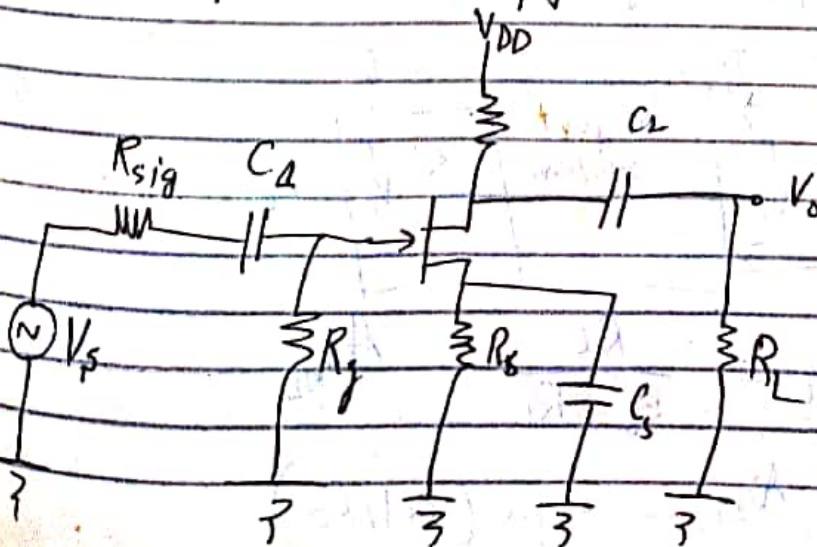 V_DD
C_2
R_sig C_1
V_o
V_s
R_g
R_s
C_s
R_L